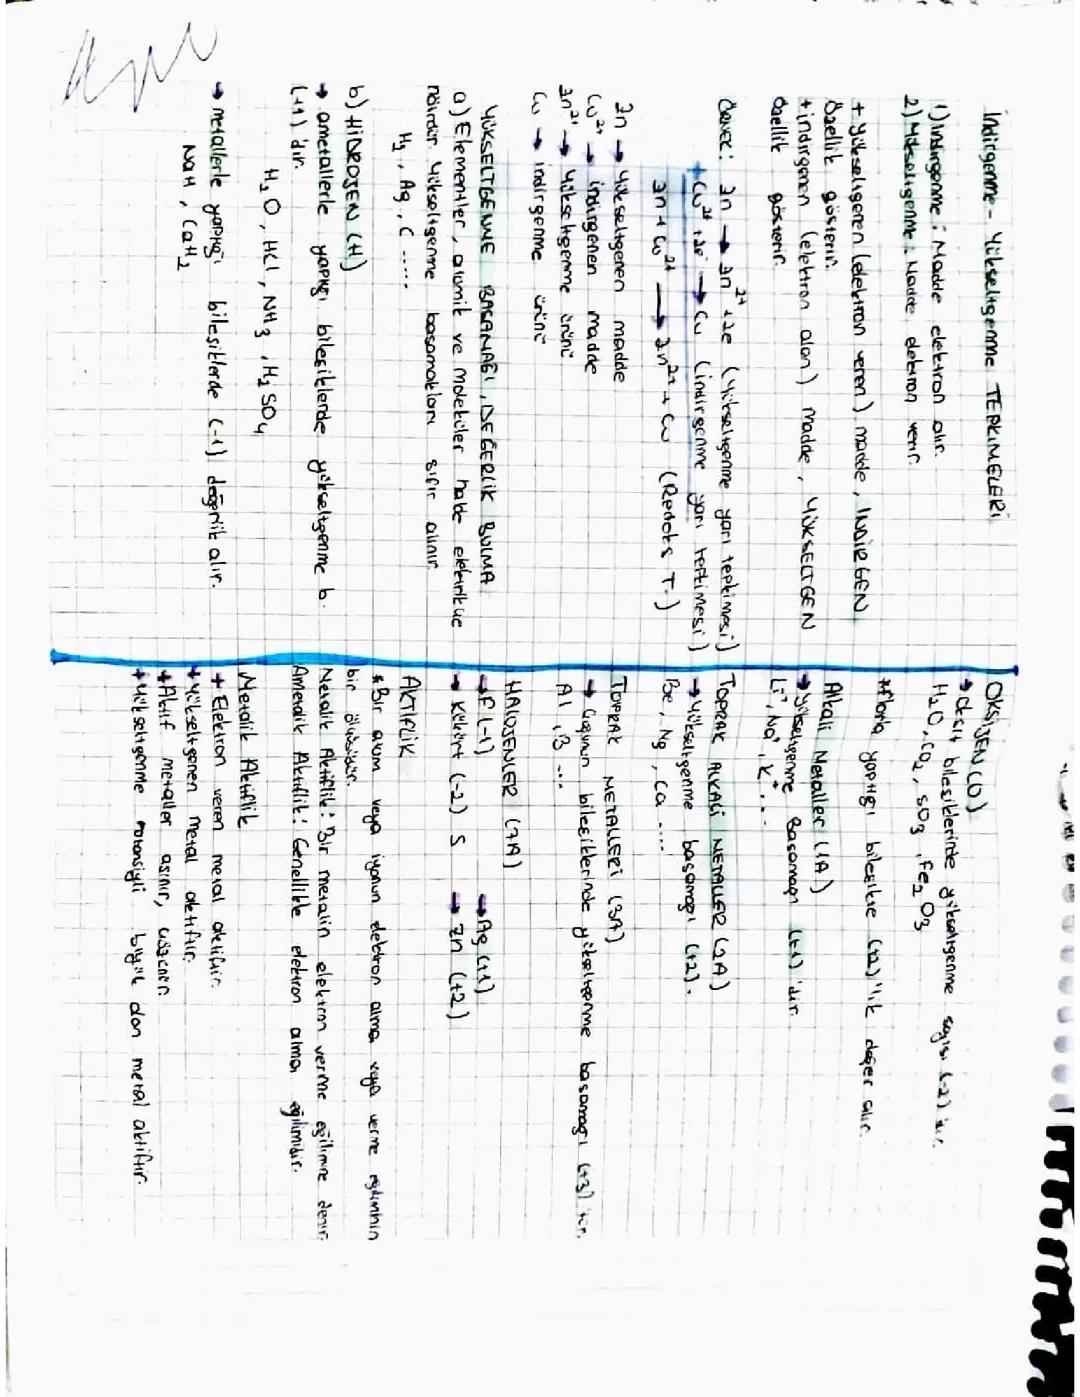 İndirgenme - Yükseltgenme TEPKİMELERİ
1) İndirgenme: Madde elektron alır.
2) Yükseltgenme: Madde elektron verir.
+ Yükseltgenen (elektron veren) madde, İNDİRGEN
özellik gösterir.
+ indirgenen (elektron alan) madde, YÜKSELTGEN
özellik gösterir.
ÖRNEK: Zn → Zn²⁺ + 2e (yükseltgenme yarı tepkimesi)
+ Cu²⁺ + 2e⁻ → Cu (indirgenme yarı tepkimesi)
Zn + Cu²⁺ → Zn²⁺ + Cu (Redoks T.)
Zn → yükseltgenen madde
Cu²⁺ → indirgenen madde
Zn²⁺ → yükseltgenme ürünü
Cu → indirgenme ürünü
YÜKSELTGENME BASAMAĞI, DEĞERLİK BULMA
a) Elementler, atomik ve moleküler halde elektrikçe
nötrdür. Yükseltgenme basamakları sıfır alınır.
H₂, Ag, C .....
b) HİDROJEN (H)
→ ametallerle yaptığı bileşiklerde yükseltgenme b.
(+1)'dir.
H₂O, HCl, NH₃, H₂SO₄
→ metallerle yaptığı bileşiklerde (-1) değerlik alır.
NaH, CaH₂
OKSİJEN (O)
→ Oksit bileşiklerinde yükseltgenme sayısı (-2)'dir.
H₂O, CO₂, SO₃, Fe₂O₃
yaptığı bileşikte (+2)'lik değer alır.
Alkali Metaller (1A)
→ Yükseltgenme Basamağı (+1)'dir.
Li⁺, Na⁺, K⁺, ...
TOPRAK ALKALİ METALLER (2A)
→ Yükseltgenme basamağı (+2).
Be, Mg, Ca ....
TOPRAK METALLERİ (3A)
→ Çoğunun bileşiklerinde yükseltgenme basamağı (+3)'tür.
Al, B ...
HALOJENLER (7A)
→ F (-1) → Ag (+1)
→ Kükürt (-2) S → Zn (+2)
AKTİFLİK
* Bir atom veya iyonun elektron alma veya verme eğiliminin
bir ölçüsüdür.
Metalik Aktiflik: Bir metalin elektron verme eğilimine denir.
Ametalik Aktiflik: Genellikle elektron alma eğilimidir.
Metalik Aktiflik
+ Elektron veren metal aktiftir.
+ Yükseltgenen metal aktiftir.
+ Aktif metaller aşınır, çözünür.
+ Yükseltgenme potansiyeli büyük olan metal aktiftir.